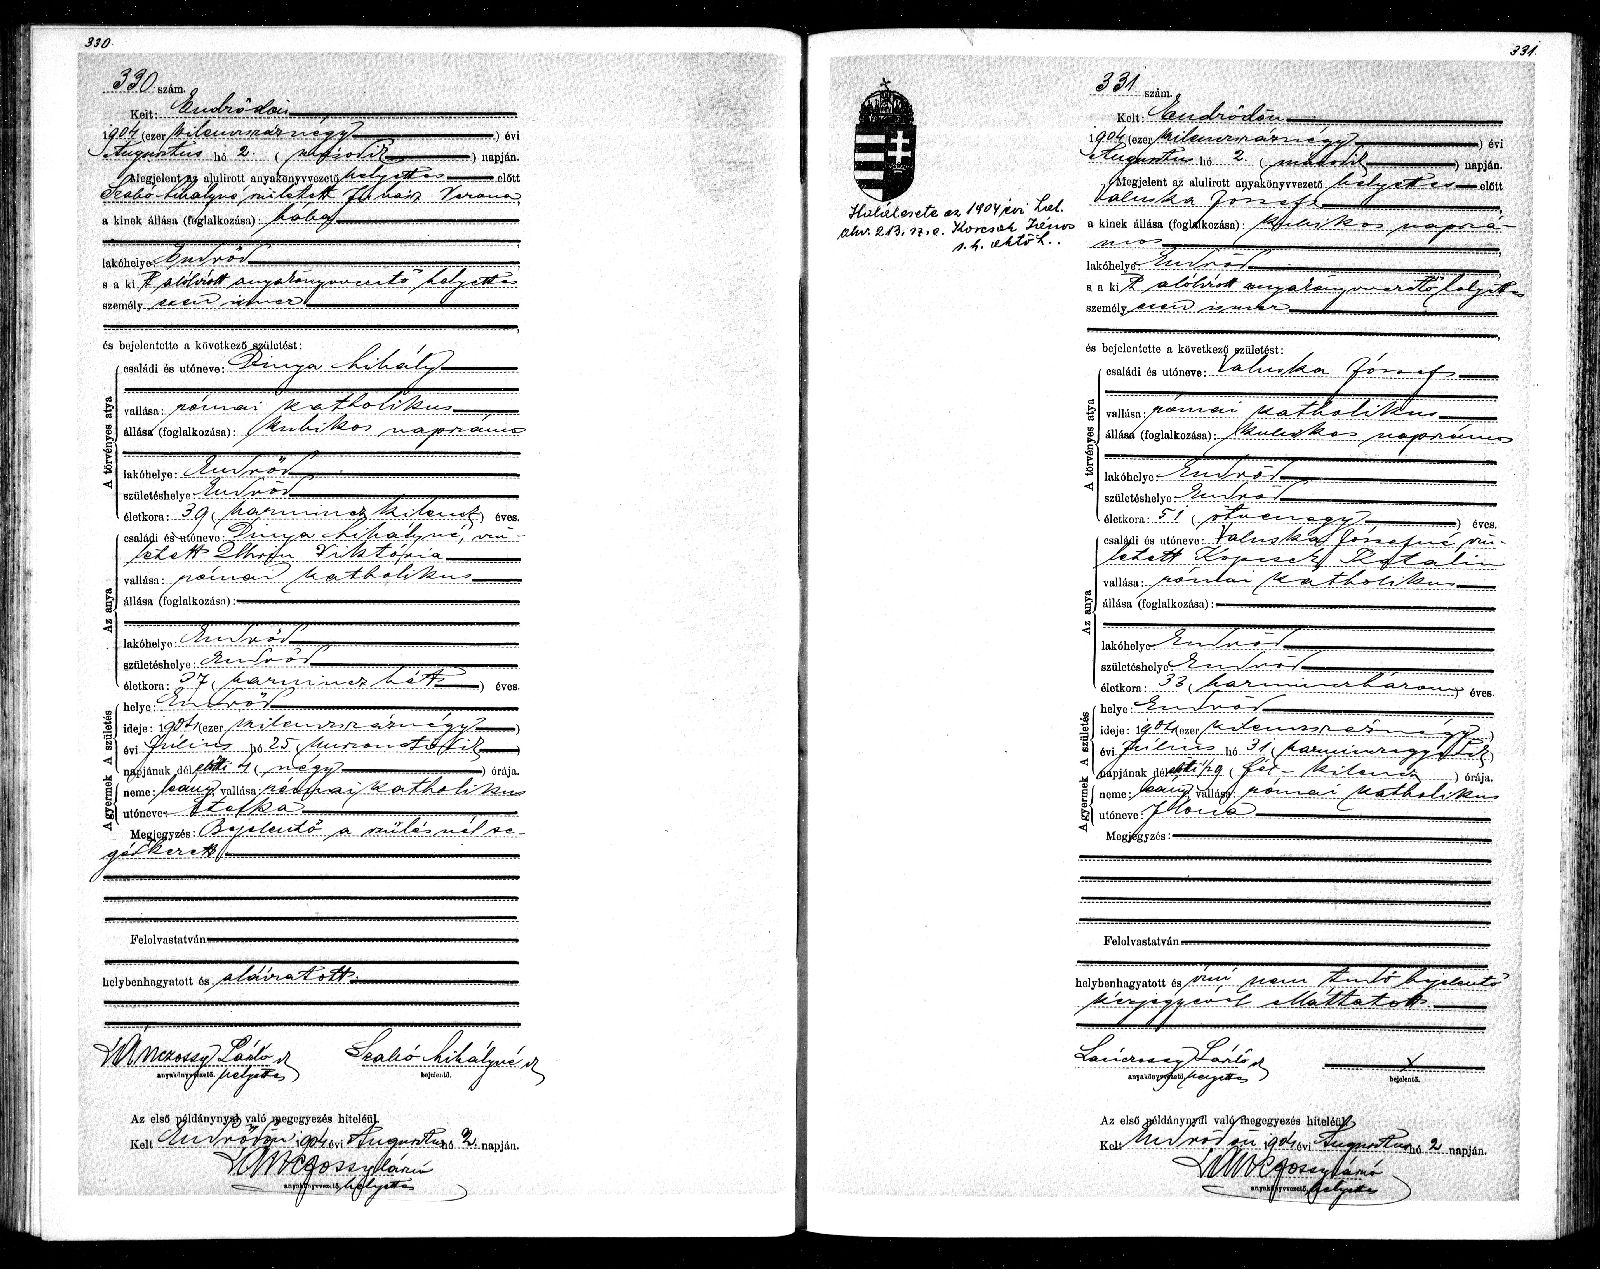 330.
330 szám.
Kelt: Endrődön
1904 (ezer kilenszáznégy) évi
Augusztus hó 2 (második) napján.
Megjelent az alulirott anyakönyvvezető helyettes előtt
Szabó Mihályné született Juhász Verona
a kinek állása (foglalkozása): bába
lakóhelye: Endrőd
s a kit alólírott anyakönyvvezető helyettes
személyesen ismer
és bejelentette a következő születést:
A törvényes atya
családi és utóneve: Dinya Mihály
vallása: római katholikus
állása (foglalkozása): kubikos napszámos
lakóhelye: Endrőd
születéshelye: Endrőd
életkora: 39 (harminczkilencz) éves.
Az anya
családi és utóneve: Dinya Mihályné, szü-
letett Viktória
vallása: római katholikus
állása (foglalkozása):
lakóhelye: Endrőd
születéshelye: Endrőd
életkora: 37 (harminczhét) éves.
A születés
helye: Endrőd
ideje: 1904 (ezer kilenszáznégy)
évi Július hó 25 (huszonötödik)
napjának délelőtti 4 (négy) órája.
A gyermek
neme: leány, vallása: római katholikus
utóneve: Etelka
Megjegyzés: Bejelentő a szülésnél se-
gédkezett
Felolvastatván
helybenhagyatott és aláiratott.
Lánczossy László
anyakönyvvezető helyettes
Szabó Mihályné
bejelentő.
Az első példánynyal való megegyezés hiteléül.
Kelt Endrődön 1904 évi Augusztus hó 2 napján.
Lánczossy László
anyakönyvvezető helyettes
331.
Halálesete az 1904 évi hal.
akv. 213. sz. a. Korcsok János
s. k. aktöh.
331 szám.
Kelt: Endrődön
1904 (ezer kilenszáznégy) évi
Augusztus hó 2 (második) napján.
Megjelent az alulirott anyakönyvvezető helyettes előtt
Valuska József
a kinek állása (foglalkozása): kubikos napszá-
mos
lakóhelye: Endrőd
s a kit alólírott anyakönyvvezető helyettes
személyesen ismer
és bejelentette a következő születést:
A törvényes atya
családi és utóneve: Valuska József
vallása: római katholikus
állása (foglalkozása): kubikos napszámos
lakóhelye: Endrőd
születéshelye: Endrőd
életkora: 51 (ötvenegy) éves.
Az anya
családi és utóneve: Valuska Józsefné szü-
letett Kopcsek Katalin
vallása: római katholikus
állása (foglalkozása):
lakóhelye: Endrőd
születéshelye: Endrőd
életkora: 33 (harminczhárom) éves.
A születés
helye: Endrőd
ideje: 1904 (ezer kilenszáznégy)
évi Július hó 31 (harminczegyedik)
napjának délelőtti 1/29 (fél-kilencz) órája.
A gyermek
neme: leány, vallása: római katholikus
utóneve: Ilona
Megjegyzés:
Felolvastatván
helybenhagyatott és írni nem tudó bejelentő
kézjegyével elláttatott
Lánczossy László
anyakönyvvezető helyettes
x
bejelentő.
Az első példánynyal való megegyezés hiteléül.
Kelt Endrődön 1904 évi Augusztus hó 2 napján.
Lánczossy László
anyakönyvvezető helyettes